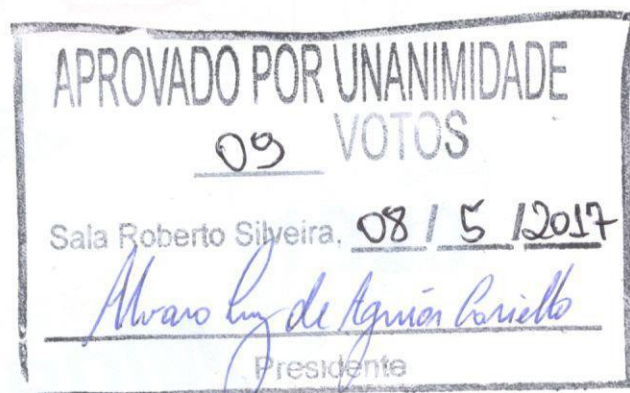 APROVADO POR UNANIMIDADE
09 VOTOS
Sala Roberto Silveira, 08 / 5 / 2017
Alvaro Luz de Aguiar Cariello
Presidente